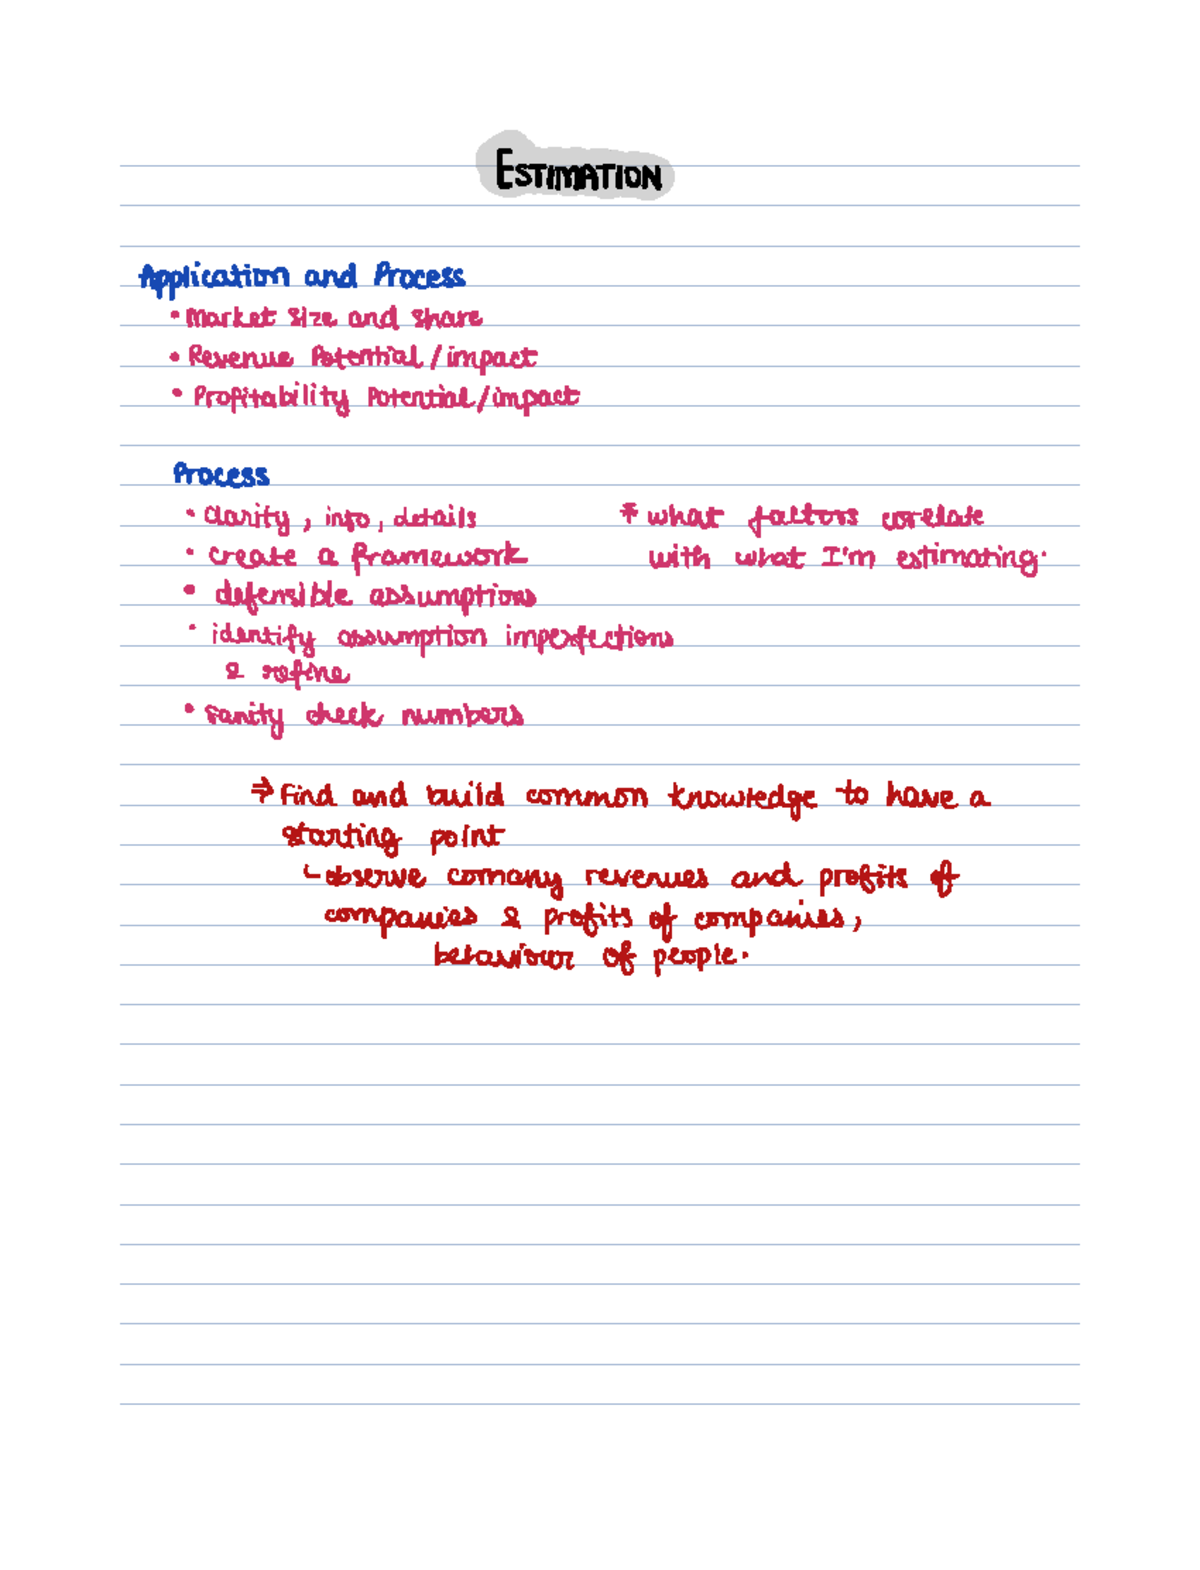 ESTIMATION
Application and Process
• Market Size and Share
• Revenue Potential / impact
• Profitability Potential/impact
Process
• clarity, info, details
* what factors corelate
• create a framework
with what I'm estimating.
• defensible assumptions
• identify assumption imperfections
& refine
• Sanity check numbers
⇒ Find and build common knowledge to have a
starting point
↳ observe comany revenues and profits of
companies & profits of companies,
behaviour of people.